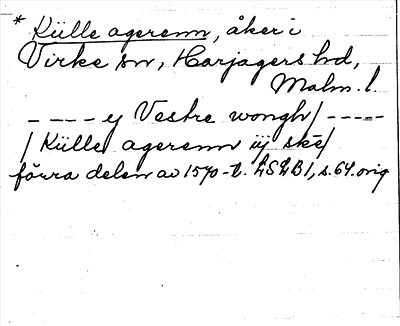 * Külle agerenn, åker i
Virke sn, Harjagers hd,
Malm. l.
- - - - ej Vestre wongh/ - - - - -
/ Külle agerenn iij ske/
förra delen av 1570-t. LSLB 1, s. 64. orig